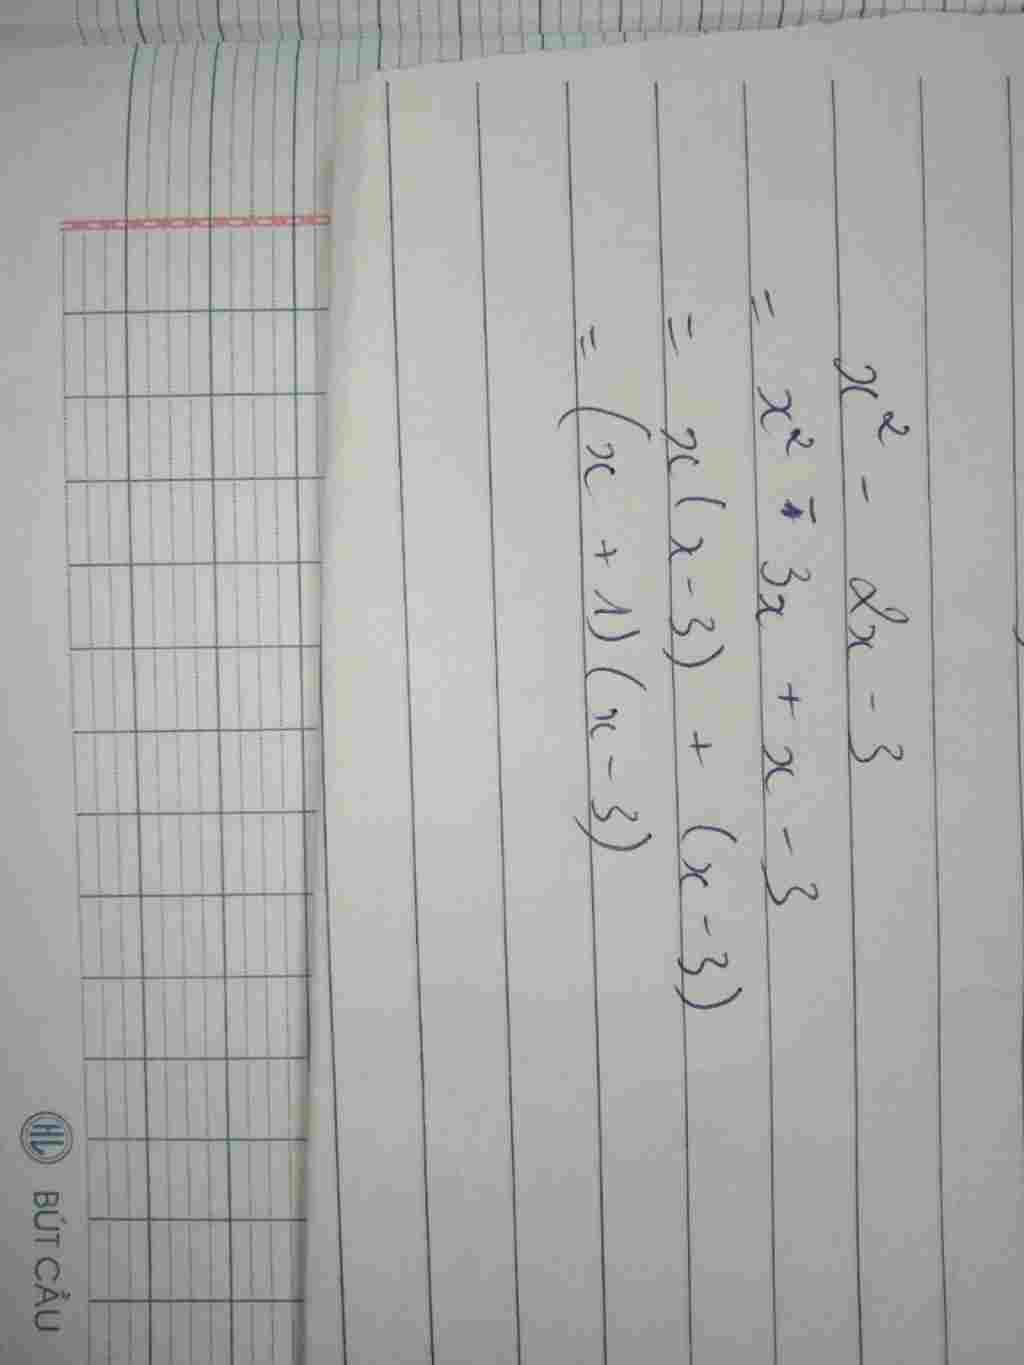 x² - 2x - 3
= x² - 3x + x - 3
= x(x-3) + (x-3)
= (x+1)(x-3)
HL BÚT CẦU